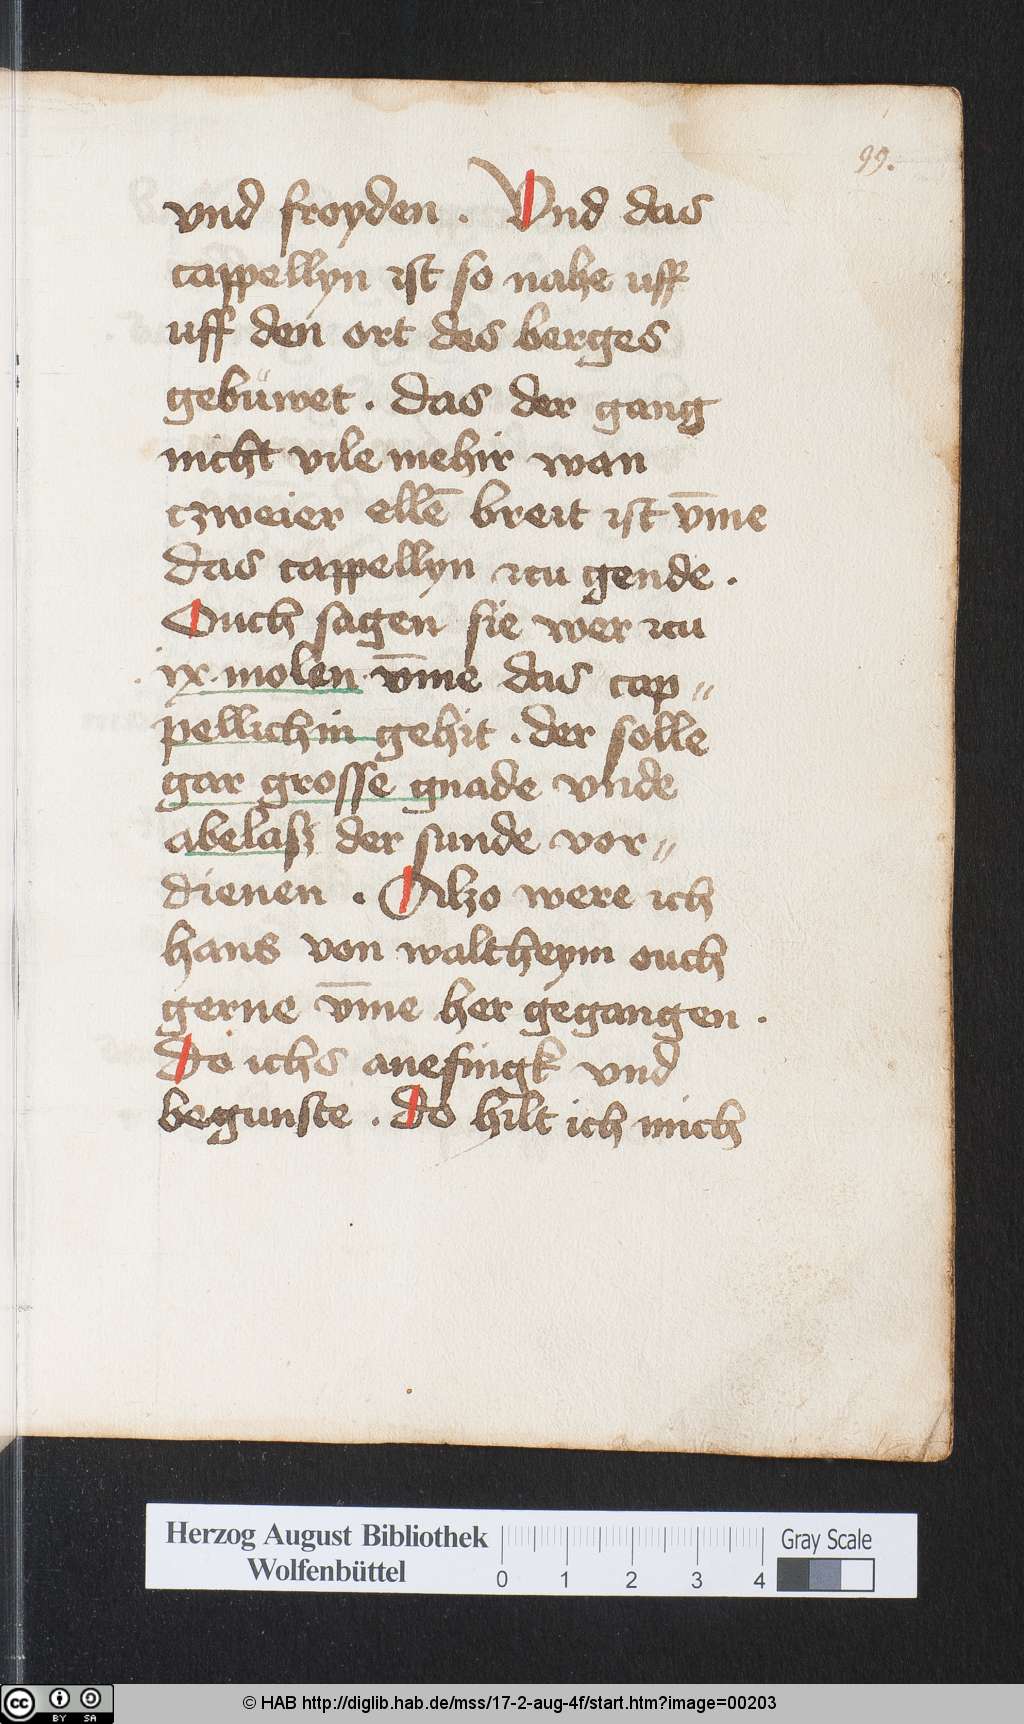 99.
vnd froyden . Vnd das
cappellyn ist so nahe uff
uff den ort des berges
gebuwet . das der gang
nicht vile mehir wan
czweier ellē breit ist vm̄e
das cappellyn zcu gende .
Ouch sagen sie wer zcu
. ix . molen . vm̄e das cap„
pellichin gehit . der solle
gar grosse gnade vnde
abelasz der sunde vor„
dienen . Alzo were ich
hans von waltheym ouch
gerne vm̄e her gegangen .
do ichs anefingk vnd
begunste . do hilt ich mich
Herzog August Bibliothek
Wolfenbüttel
0 1 2 3 4
Gray Scale
cc BY SA
© HAB http://diglib.hab.de/mss/17-2-aug-4f/start.htm?image=00203